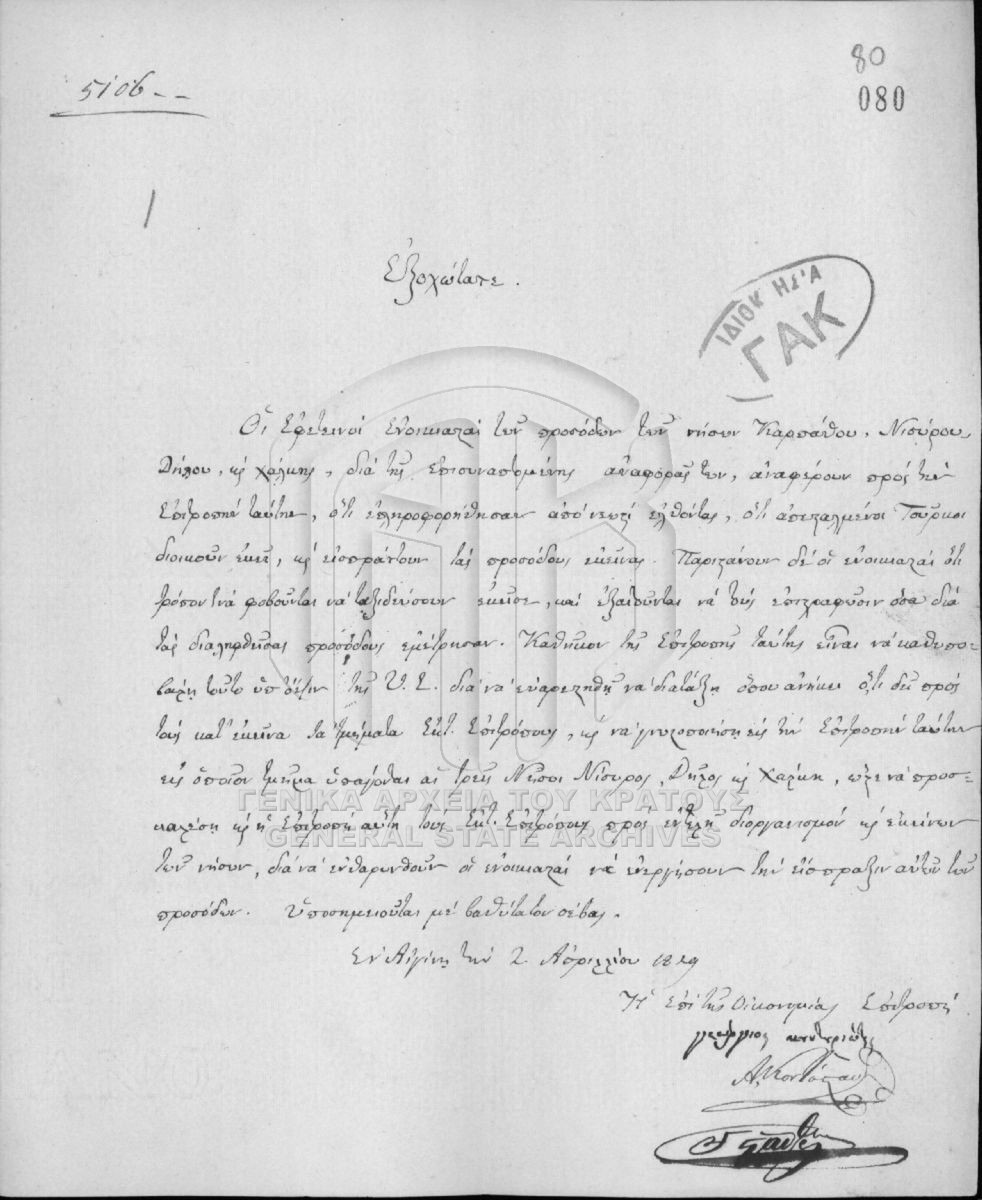 80
5106 - -
080
Ἐξοχώτατε.
ΙΔΙΟΚΤΗΣΙΑ
ΓΑΚ
Οἱ ἐφετεινοὶ ἐνοικιασταὶ τῶν προσόδων τῶν νήσων Καρπάθου, Νισύρου
Δήλου, καὶ Χάλκης, διὰ τῆς ἐπισυναπτομένης ἀναφορᾶς των, ἀναφέρουν πρὸς τὴν
Ἐπιτροπὴν ταύτην, ὅτι ἐπληροφορήθησαν ἀπὸ ἐλθόντας, ὅτι ἀπεσταλμένοι Τοῦρκοι
διοικοῦν ἐκεῖ, καὶ εἰσπράττουν τὰς προσόδους ἐκείνας. Παριστάνουν δὲ οἱ ἐνοικιασταὶ ὅτι
τρόπον τινὰ φοβοῦνται νὰ ταξιδεύσουν ἐκεῖσε, καὶ ἐξαιτοῦνται νὰ τοὺς ἐπιστραφῶσιν ὅσα διὰ
τὰς διαληφθείσας προσόδους ἐμέτρησαν. Καθῆκον τῆς Ἐπιτροπῆς ταύτης εἶναι νὰ καθυπο-
βάλῃ τοῦτο ὑπ' ὄψιν τῆς Υ. Ε. διὰ νὰ εὐαρεστηθῇ νὰ διατάξῃ ὅπου ἀνήκει ὅτι δεῖ πρὸς
τοὺς κατ' ἐκεῖνα τὰ τμήματα Ἐκτ. Ἐπιτρόπους, καὶ νὰ γνωστοποιήσῃ εἰς τὴν Ἐπιτροπὴν ταύτην
εἰς ὁποῖον τμῆμα ὑπάγονται αἱ τρεῖς Νῆσοι Νίσυρος, Δῆλος καὶ Χάλκη, ὥστε νὰ προσ-
καλέσῃ καὶ ἡ Ἐπιτροπὴ αὕτη τοὺς Ἐκτ. Ἐπιτρόπους πρὸς ἐντελῆ διοργανισμὸν καὶ ἐκείνων
τῶν νήσων, διὰ νὰ ἐνθαρυνθοῦν οἱ ἐνοικιασταὶ νὰ ἐνεργήσουν τὴν εἴσπραξιν αὐτῶν τῶν
προσόδων. Ὑποσημειοῦται μὲ βαθύτατον σέβας.
Ἐν Αἰγίνῃ τὴν 2. Ἀπριλλίου 1829
Ἡ ἐπὶ τῆς Οἰκονομίας Ἐπιτροπὴ
γεώργιος κουντουριώτης
Α. Κοντόσταυλος
ΓΕΝΙΚΑ ΑΡΧΕΙΑ ΤΟΥ ΚΡΑΤΟΥΣ
GENERAL STATE ARCHIVES